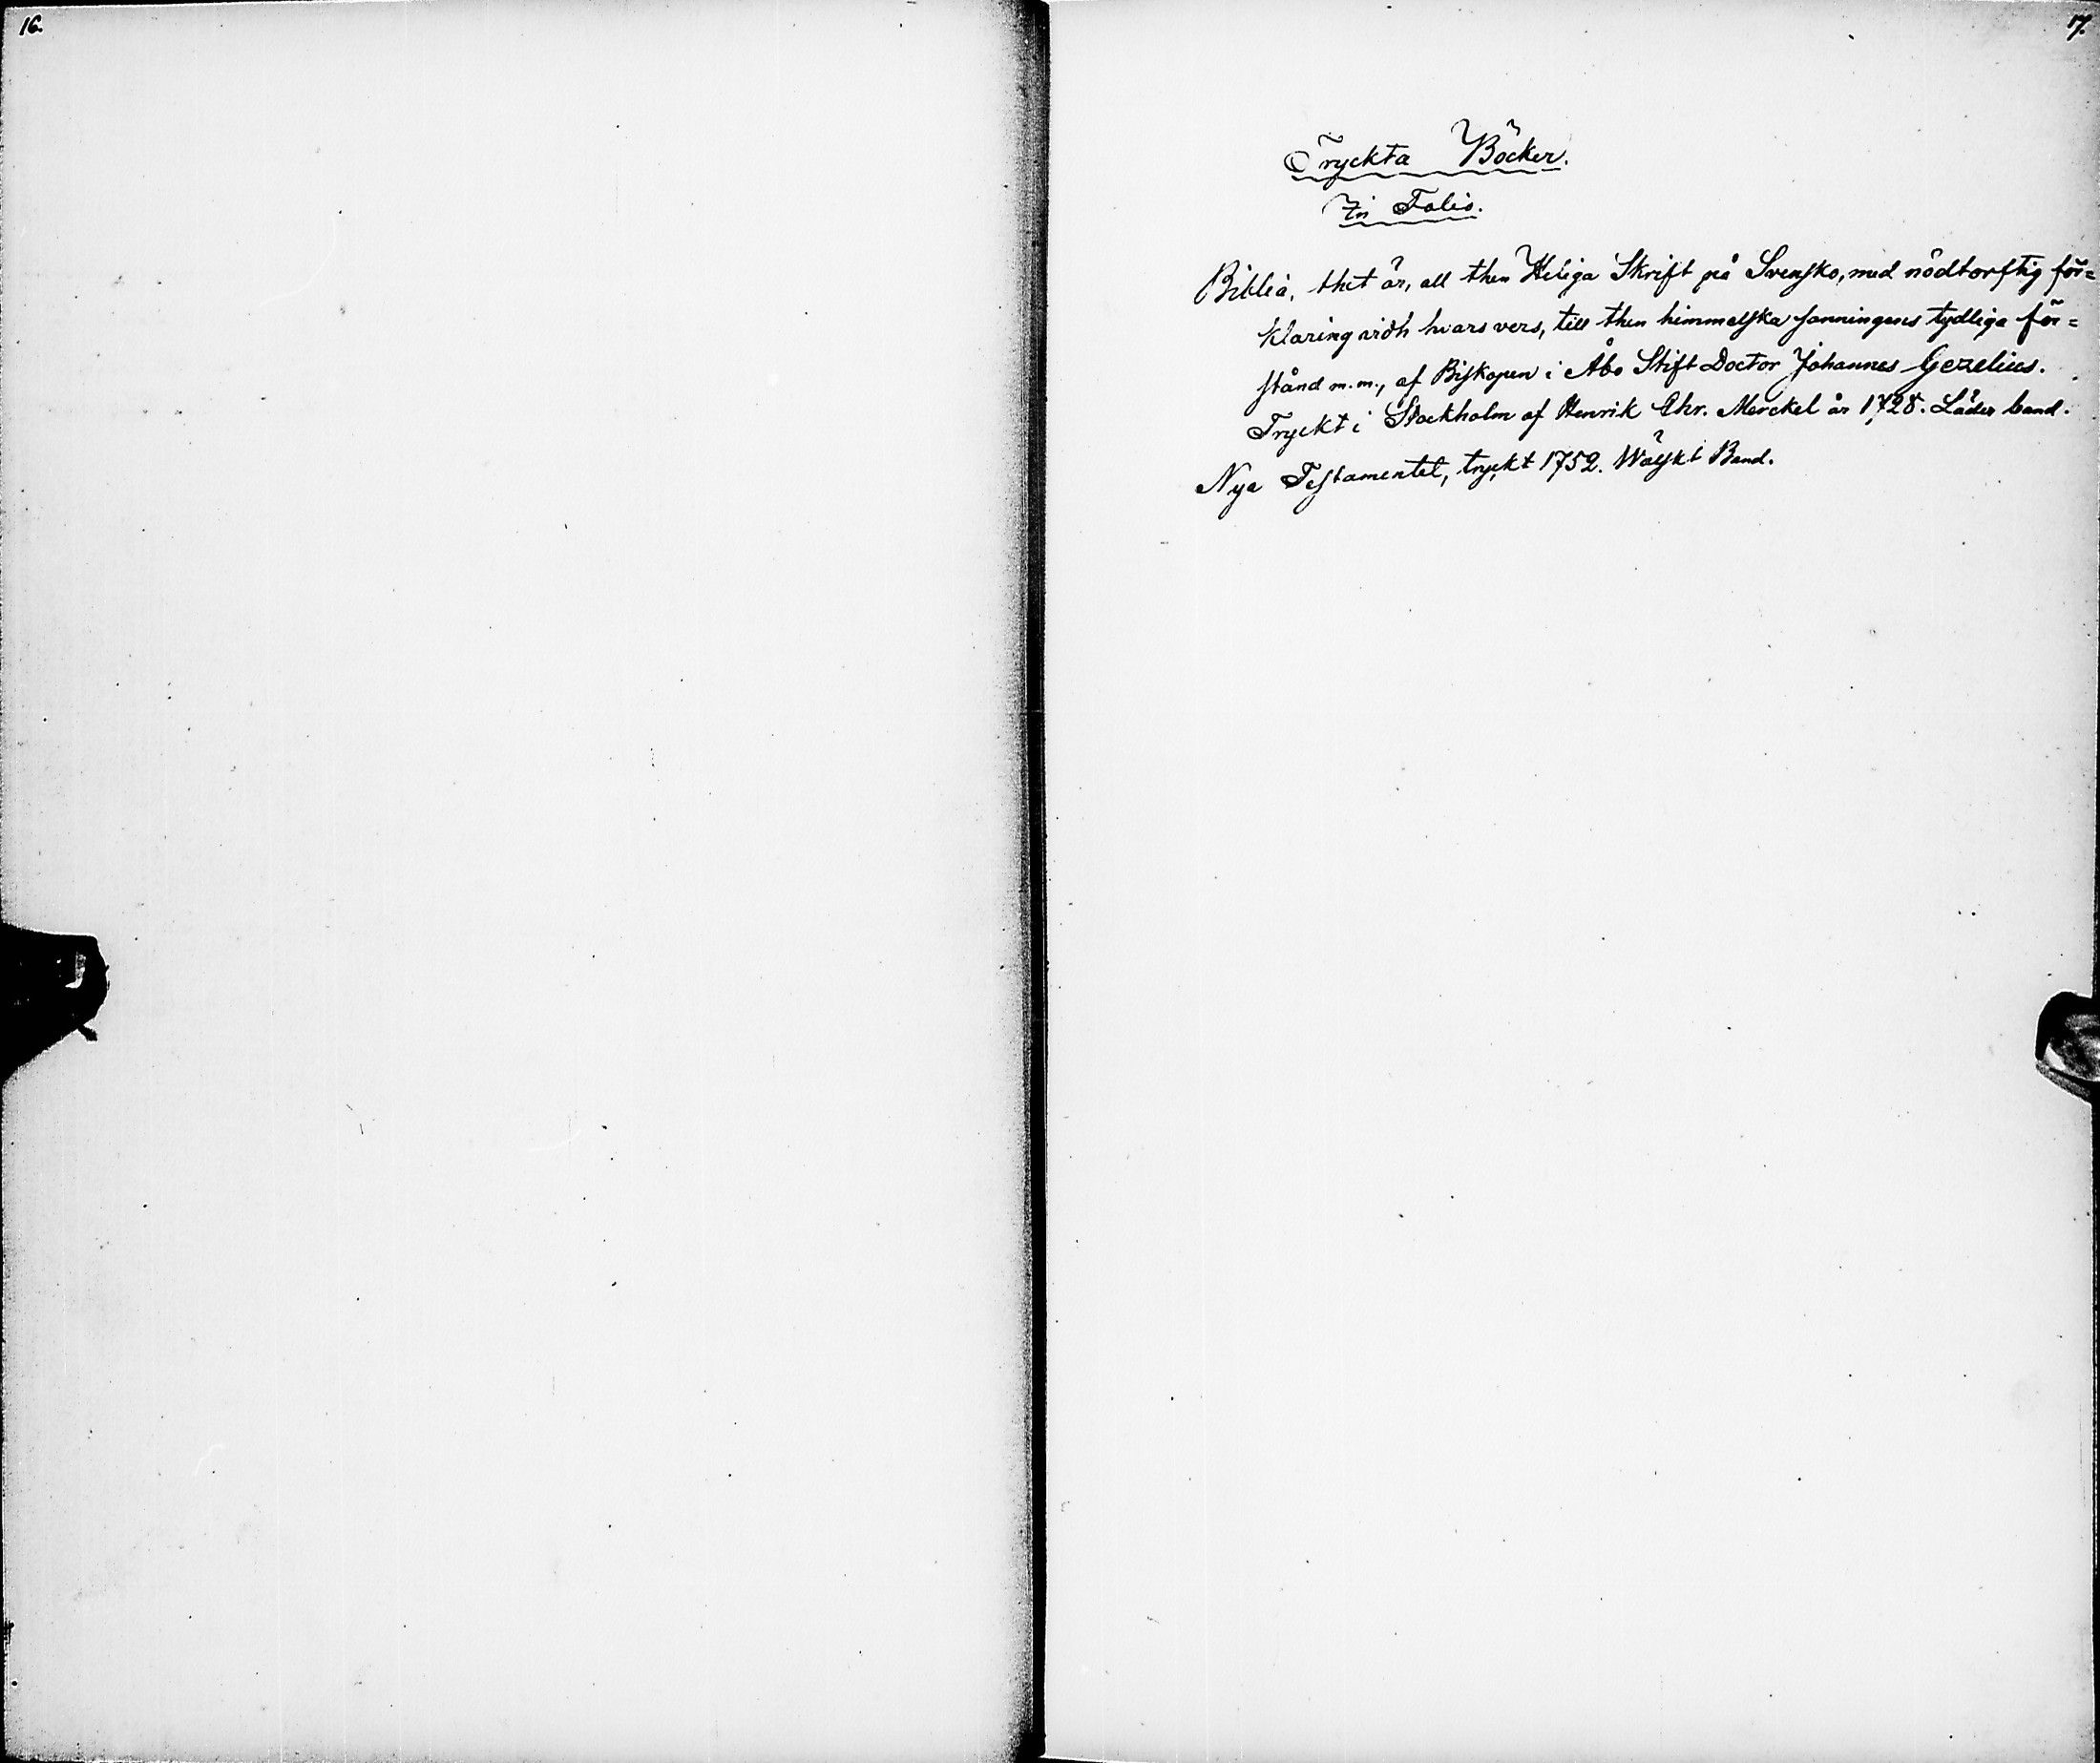 16.
17.
Tryckta Böcker.
In Folio.
Biblia, thet är, all then Heliga Skrift på Svensko, med nödtorftig för=
klaring vidh hvars vers, till then himmelska sanningens tydliga för=
stånd m.m., af Biskopen i Åbo Stift Doctor Johannes Gezelius.
Tryckt i Stockholm af Henrik Chr. Merckel år 1728. Läder band.
Nya Testamentet, tryckt 1752. Wälskt Band.